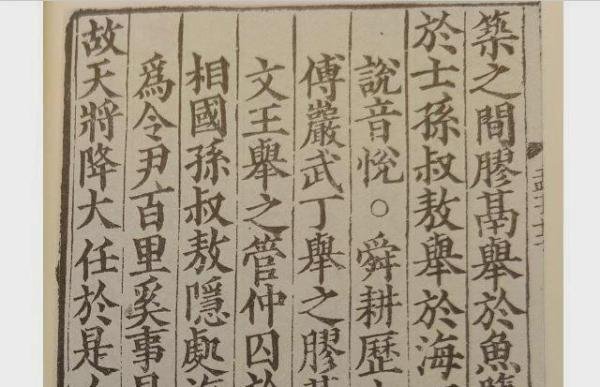 築之間膠鬲舉於魚
於士孫叔敖舉於海
說音悅○舜耕歷
傅巖武丁舉之膠
文王舉之管仲囚於
相國孫叔敖隱處海
爲令尹百里奚事
故天將降大任於是